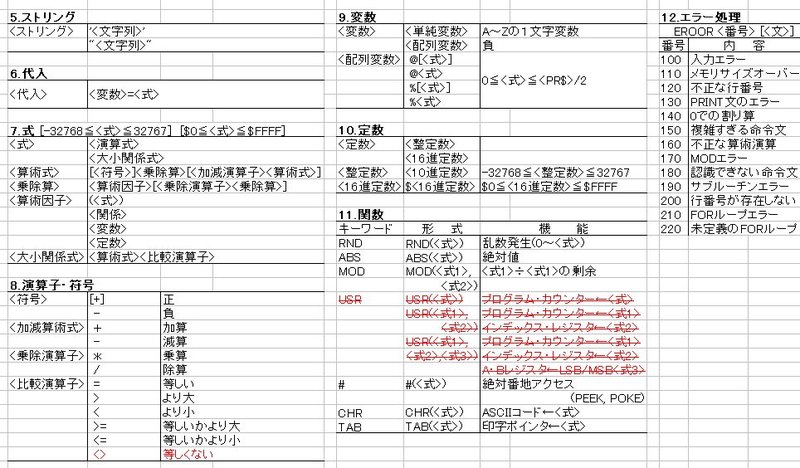 5.ストリング
<ストリング> '<文字列>'
"<文字列>"
6.代入
<代入> <変数>=<式>
7.式 [-32768≦<式>≦32767] [$0≦<式>≦$FFFF]
<式> <演算式>
<大小関係式>
<算術式> [<符号>]<乗除算>[<加減演算子><算術式>]
<乗除算> <算術因子>[<乗除演算子><乗除算>]
<算術因子> (<式>)
<関係>
<変数>
<定数>
<大小関係式> <算術式><比較演算子>
8.演算子・符号
<符号> [+] 正
- 負
<加減算術式> + 加算
- 減算
<乗除演算子> * 乗算
/ 除算
<比較演算子> = 等しい
> より大
< より小
>= 等しいかより大
<= 等しいかより小
<> 等しくない
9.変数
<変数> <単純変数> A~Zの1文字変数
<配列変数> 負
<配列変数> @[<式>]
@<式> 0≦<式>≦<PR$>/2
%[<式>]
%<式>
10.定数
<定数> <整定数>
<16進定数>
<整定数> <10進定数> -32768≦<整定数>≦32767
<16進定数> $<16進定数> $0≦<16進定数>≦$FFFF
11.関数
キーワード 形 式 機 能
RND RND(<式>) 乱数発生(0~<式>)
ABS ABS(<式>) 絶対値
MOD MOD(<式1>, <式1>÷<式1>の剰余
<式2>)
USR USR(<式>) プログラム・カウンター←<式>
USR(<式1>, プログラム・カウンター←<式1>
<式2>) インデックス・レジスタ←<式2>
USR(<式1>, プログラム・カウンター←<式1>
<式2>,<式3>) インデックス・レジスタ←<式2>
A・Bレジスタ←LSB/MSB<式3>
# #(<式>) 絶対番地アクセス
(PEEK, POKE)
CHR CHR(<式>) ASCIIコード←<式>
TAB TAB(<式>) 印字ポインタ←<式>
12.エラー処理
EROOR <番号> [<文>]
番号 内 容
100 入力エラー
110 メモリサイズオーバー
120 不正な行番号
130 PRINT文のエラー
140 0での割り算
150 複雑すぎる命令文
160 不正な算術演算
170 MODエラー
180 認識できない命令文
190 サブルーチンエラー
200 行番号が存在しない
210 FORループエラー
220 未定義のFORループ